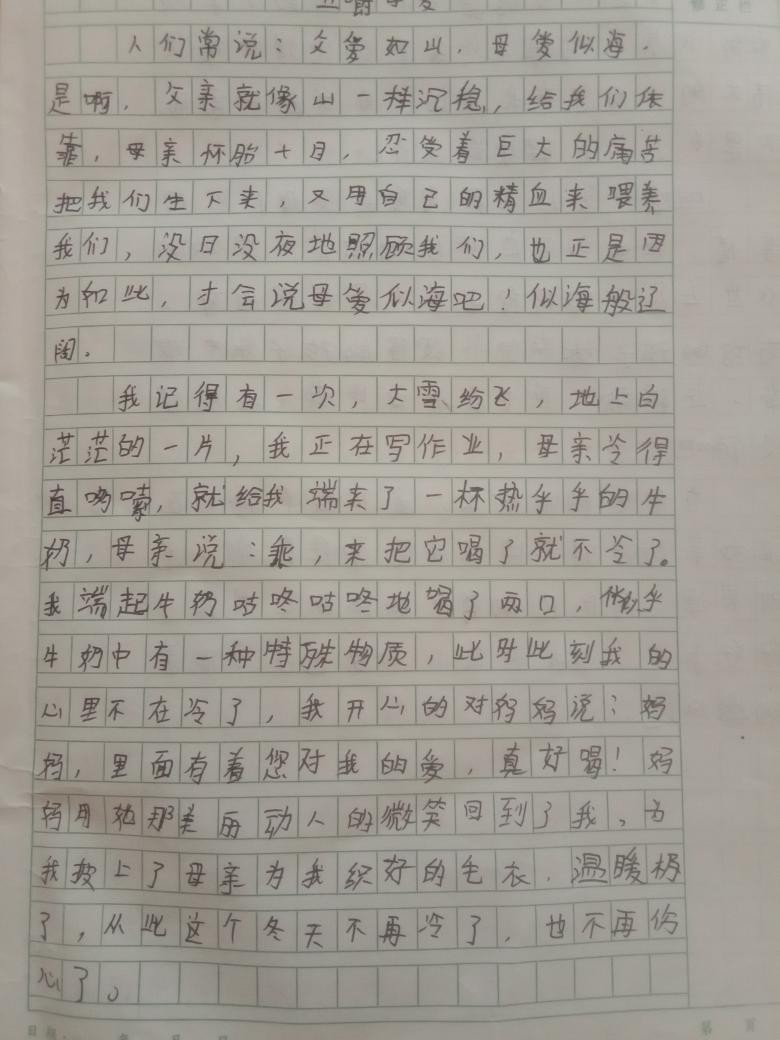 人们常说：父爱如山，母爱似海。
是啊，父亲就像山一样沉稳，给我们依
靠，母亲怀胎十月，忍受着巨大的痛苦
把我们生下来，又用自己的精血来喂养
我们，没日没夜地照顾我们，也正是因
为如此，才会说母爱似海吧！似海般辽
阔。
我记得有一次，大雪纷飞，地上白
茫茫的一片，我正在写作业，母亲冷得
直哆嗦，就给我端来了一杯热乎乎的牛
奶，母亲说：乖，来把它喝了就不冷了。
我端起牛奶咕咚咕咚地喝了两口，似乎
牛奶中有一种特殊物质，此时此刻我的
心里不在冷了，我开心的对妈妈说：妈
妈，里面有着您对我的爱，真好喝！妈
妈用她那美丽动人的微笑回到了我，为
我披上了母亲为我织好的毛衣，温暖极
了，从此这个冬天不再冷了，也不再伤
心了。